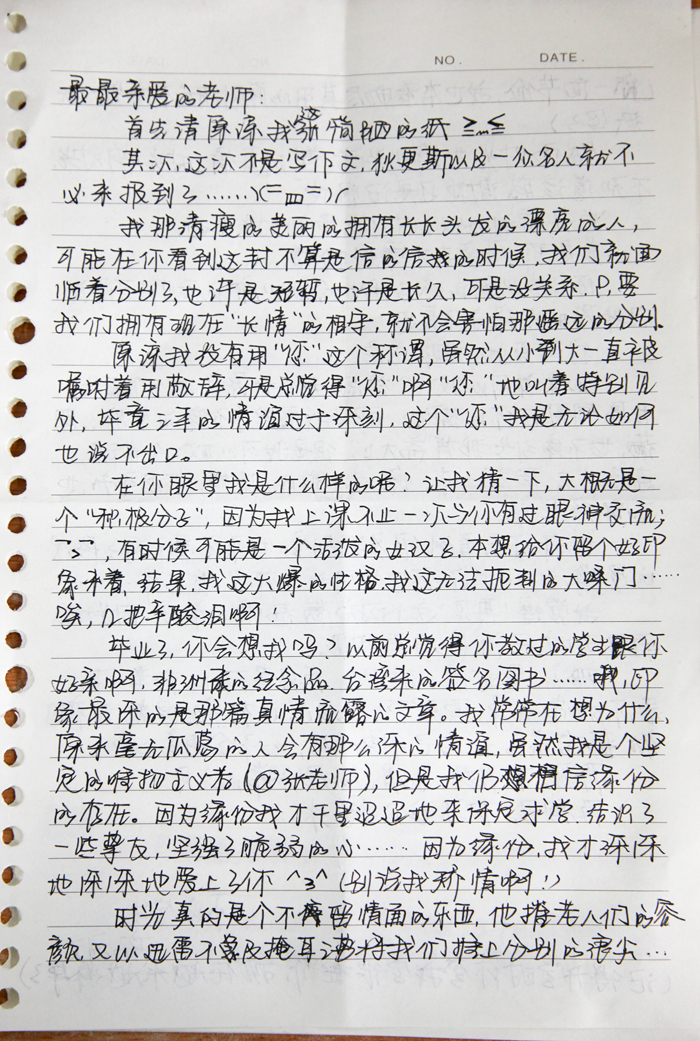 NO. DATE.
最最亲爱的老师:
首先请原谅我简陋的纸 ≧m≦
其次,这次不是写作文,狄更斯以及一众名人就不
必来报到了……)(=皿=)(
我那清瘦的美丽的拥有长长头发的漂亮的人,
可能在你看到这封不算是信的信的时候,我们就面
临着分别了,也许是短暂,也许是长久,可是没关系,只要
我们拥有现在"长情"的相守,就不会害怕那遥远的分别.
原谅我没有用"您"这个称谓,虽然从小到大一直被
嘱咐着用敬辞,可是总觉得"您"啊"您"地叫着特别见
外,毕竟三年的情谊过于深刻,这个"您"我是无论如何
也说不出口。
在你眼里我是什么样的呢?让我猜一下,大概是一
个"积极分子",因为我上课不止一次与你有过眼神交流;
ˉ3ˉ,有时候可能是一个活泼的女汉子,本想给你留个好印
象来着,结果,我这火爆的性格,我这无法扼制的大嗓门……
唉,几把辛酸泪啊!
毕业了,你会想我吗?以前总觉得你教过的学生跟你
好亲啊,非洲来的纪念品,台湾来的签名图书……哦,印
象最深的是那篇真情流露的文章。我常常在想为什么,
原来毫无瓜葛的人会有那么深的情谊,虽然我是个坚
定的唯物主义者(@张老师),但是我仍相信缘份
的存在。因为缘份我才千里迢迢地来保定求学,结识了
一些挚友,坚强了脆弱的心……因为缘份,我才深深
地深深地爱上了你 ^3^ (别说我矫情啊!)
时光真的是个不留情面的东西,他摧老人们的容
颜,又以迅雷不及掩耳之势将我们推上分别的浪尖…